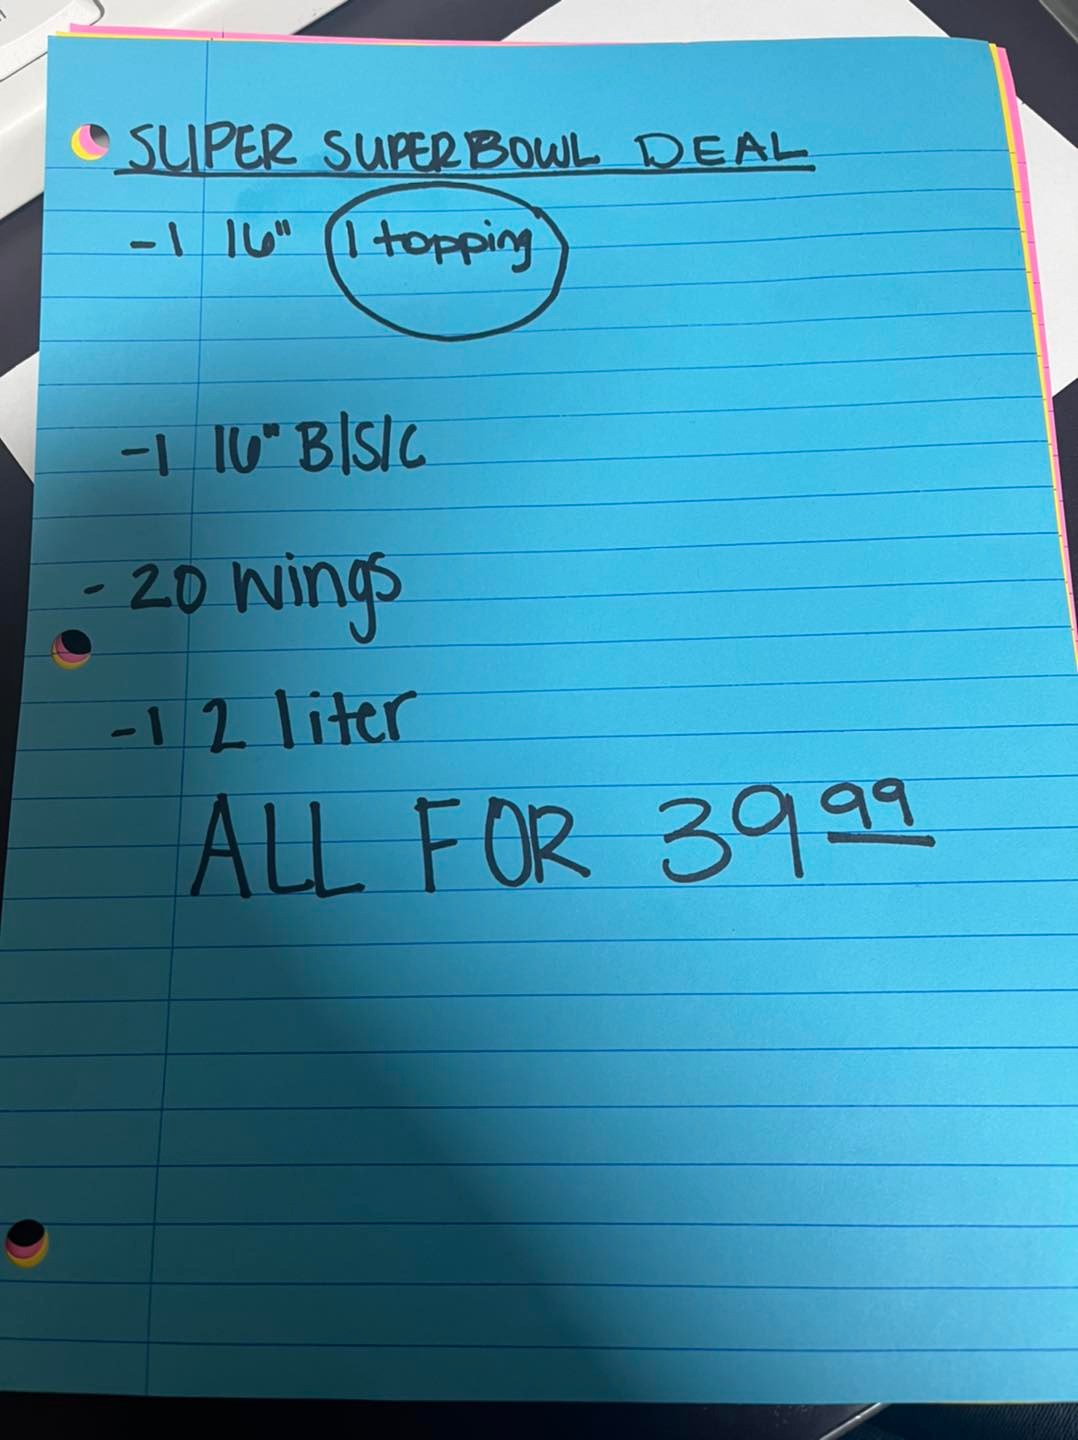 SUPER SUPERBOWL DEAL
-1 16" 1 topping
-1 16" B/S/C
- 20 wings
-1 2 liter
ALL FOR 39 99